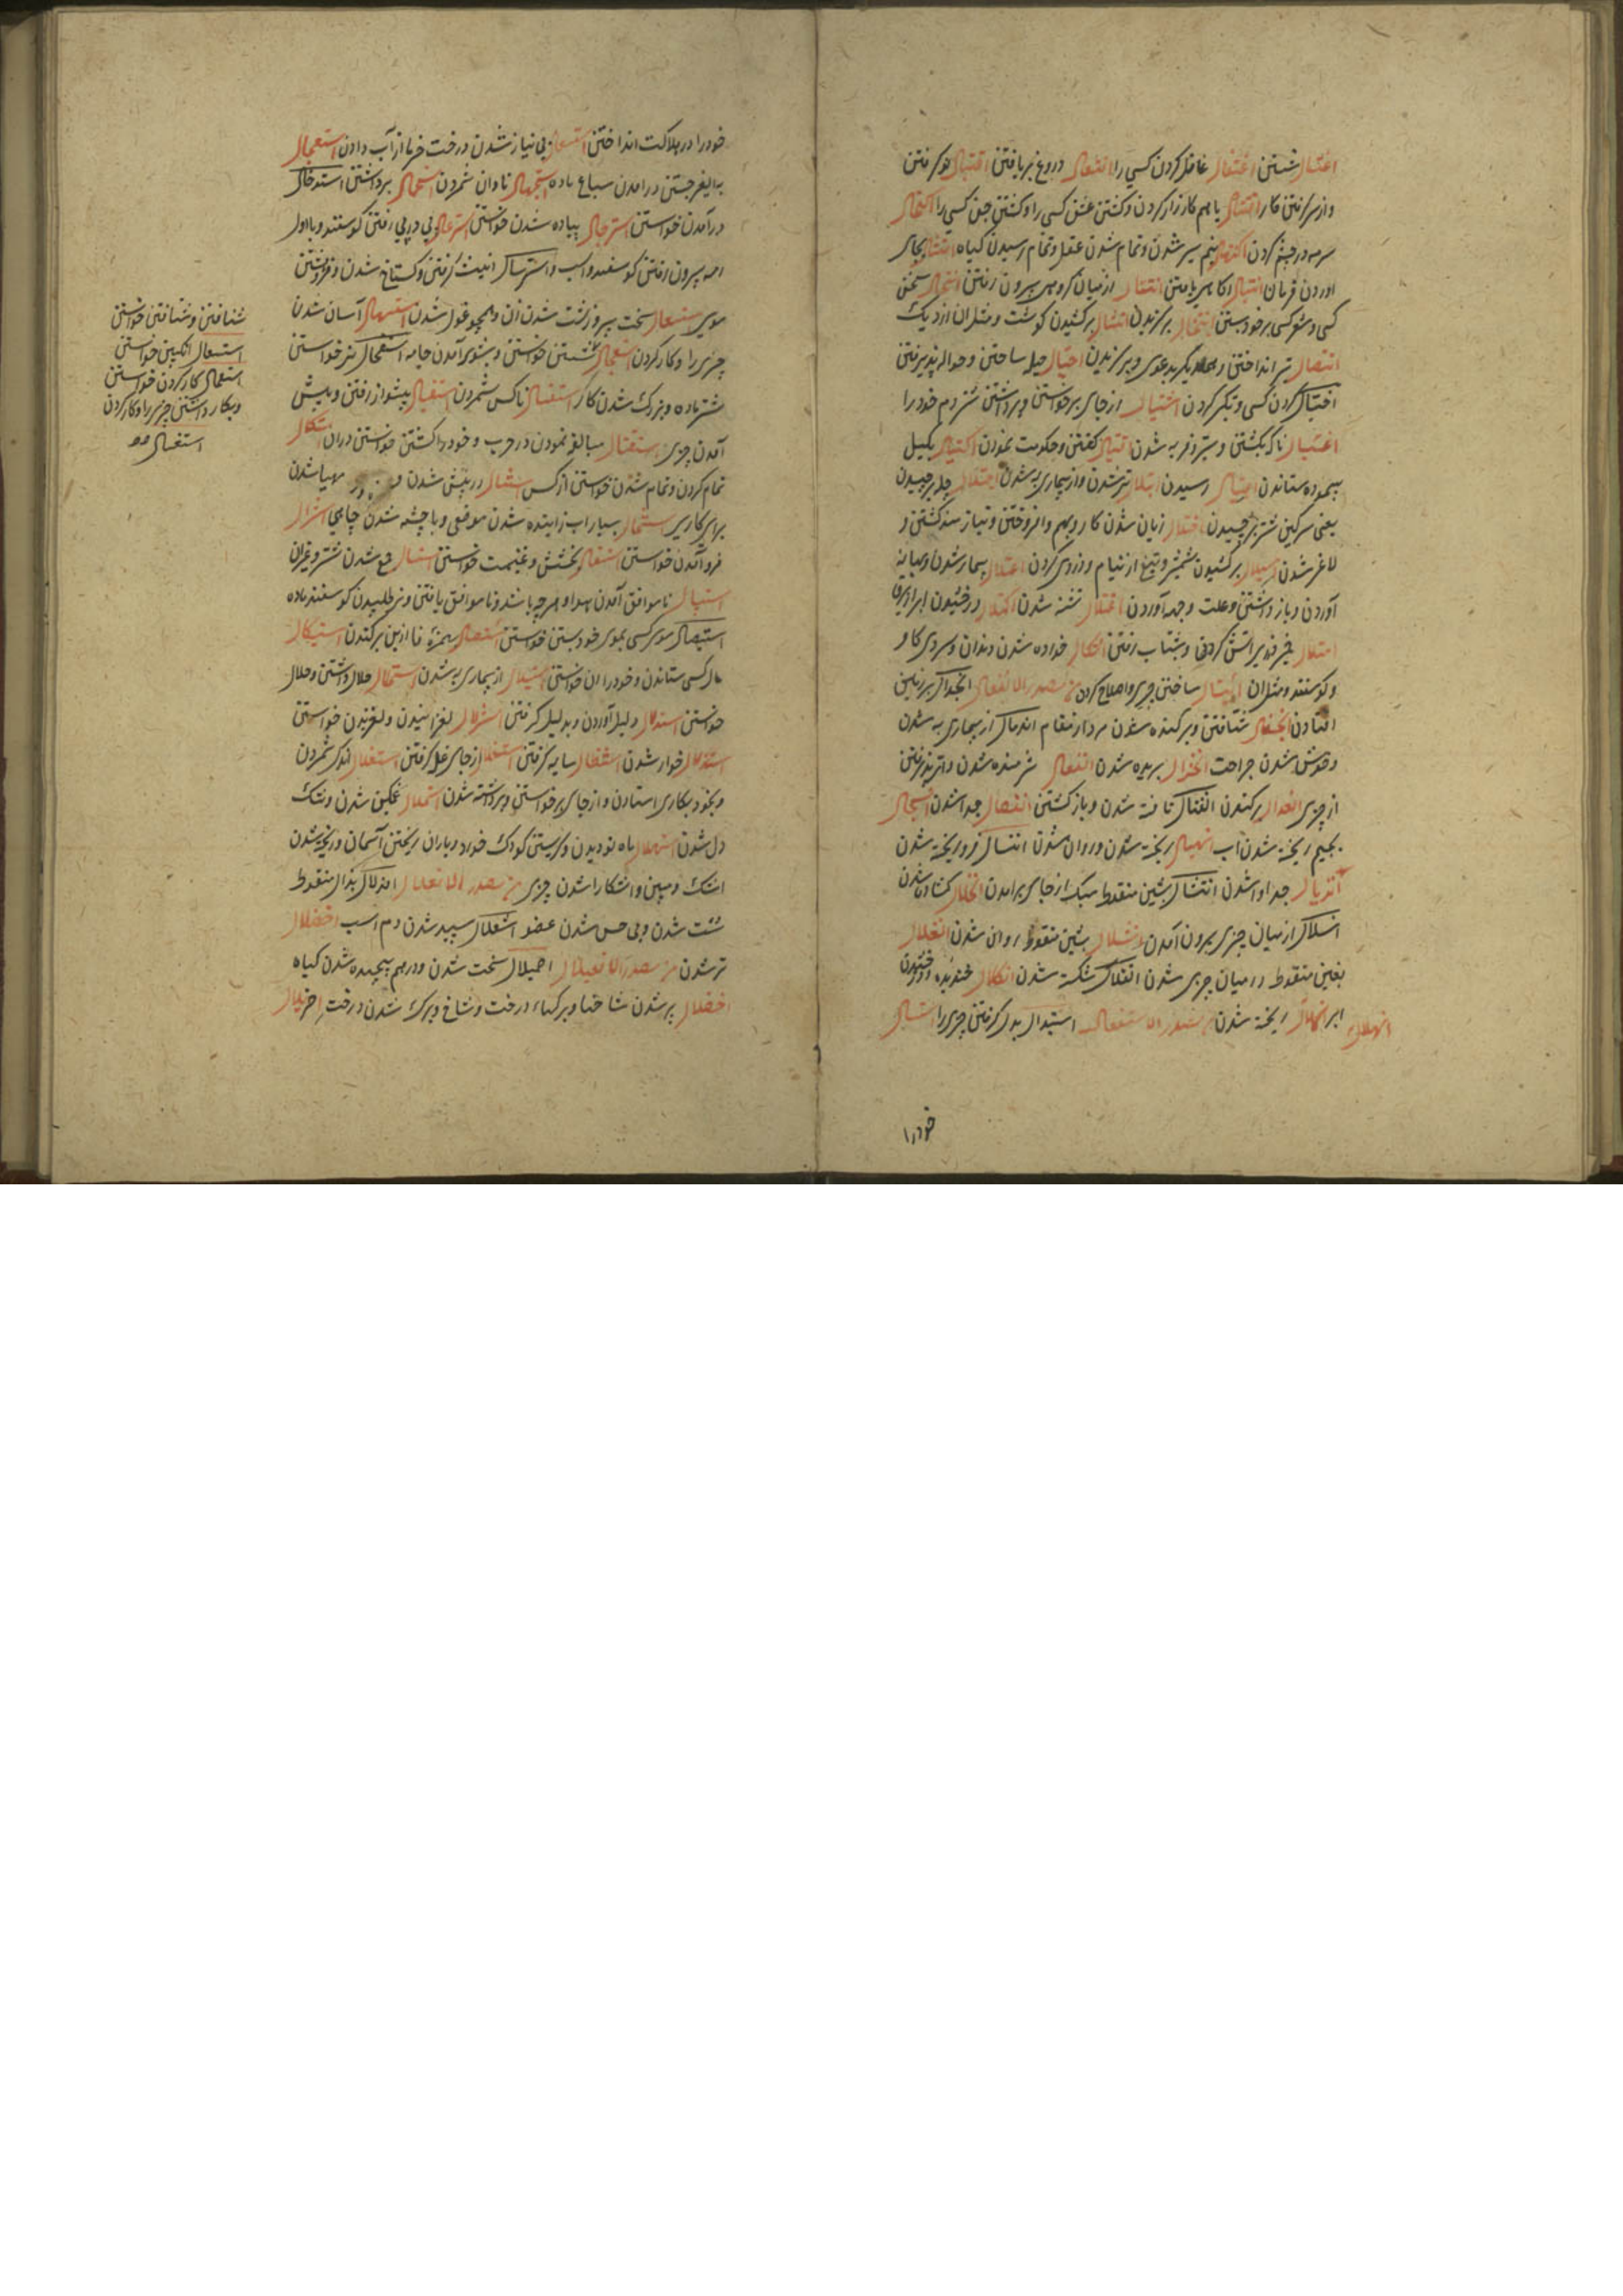 اغتسال شستن اغتفال غافل کردن کسی را افتعال دروغ بر بافتن اقتبال نو گرفتن
و از سر گرفتن کار اقتتال با هم کارزار کردن و کشتن عشق کسی را و کشتن جن کسی را اکتحال
سرمه در چشم کردن اکتهال نیم سیر شدن و تمام شدن عقل و تمام رسیدن گیاه امتثال بجای
آوردن فرمان انتبال آگاهی یافتن انتفال از میان گروهی بیرون رفتن انتحال سخن
کسی و شعر کسی بر خود بستن انتخال برگزیدن انتشال برکشیدن گوشت و مثل آن از دیگ
انتضال تیر انداختن و بهم دیگر بدعوی و برگزیدن احتیال حیله ساختن و حواله پذیرفتن
اختیال کردن کسی و تکبر کردن اشتیال از جای برخواستن و برداشتن شتر دم خود را
اغتیال ناگه بکشتن و سبتر و فربه شدن اقتیال گفتن و حکومت نمودن اکتیال بکیل
پیموده ستاندن رسیدن ابتلال تر شدن و از بیماری به شدن اجتلال جله برچیدن
یعنی سرگین شتر برچیدن اختلال زیان شدن کار و بهم وا فروختن و نیازمند گشتن و
لاغر شدن استلال برکشیدن شمشیر و تیغ از نیام و دزدی کردن اعتلال بیمار شدن و بهانه
آوردن و باز داشتن و علت و جهد آوردن اغتلال تشنه شدن اکتلال درخشیدن ابر
امتلال خبز در آتش کردن و بشتاب رفتن ائتکال خورده شدن دندان و سروی گاو
و گوسفند و مثل آن ایتبال ساختن چیزی و اصلاح کردن من مصدر الانفعال انجدال بر زمین
افتادن انجفال شتافتن و برکنده شدن مردار مقام اندمال از بیماری به شدن
و خوش شدن جراحت انخزال بریده شدن انفعال شرمنده شدن و اثر پذیرفتن
از چیزی برکندن انفتال تافته شدن و باز گشتن انفصال جدا شدن انسجال
بجیم ریخته شدن آب انهیال ریخته شدن و روان شدن انثیال فرو ریخته شدن
انزیال جدا وا شدن انتشال بشین منقوط سبک از جای برامدن انحلال گشاده شدن
انسلال از میان چیزی بیرون آمدن انشلال بشین منقوط روان شدن انغلال
بغین منقوط در میان چیزی شدن انفلال شکسته شدن انکلال خندیدن و درخشیدن
ابر انهلال ریخته شدن من مصدر الاستفعال استبدال بدل گرفتن چیزی را استبسال
انهلال
خود را
خود را در هلاکت انداختن استبعال بی نیاز شدن درخت خرما از آب دادن استعجال
استجهال نادان شمردن استحمال برداشتن استدخال
درآمدن خواستن استرجال پیاده شدن خواستن استرعال پی در پی رفتن گوسفند و باول
رمه بیرون رفتن گوسفند و اسب و استرسال انیست گرفتن و گستاخ شدن و فروهشتن
موی استسعال سخت پیر و زشت شدن زن و همچو غول شدن استسهال آسان شدن
چیزی را و کار کردن استغسال شستن خواستن و بشوی آمدن جامه استفحال نر خواستن
شتر ماده و بزرگ شدن کار استفسال ناکس شمردن استقبال پیشواز رفتن و پیش
آمدن چیزی استقتال مبالغه نمودن در حرب و خود را کشتن خواستن در آن استکمال
تمام کردن و تمام شدن خواستن از کس استمثال در پیش شدن مهیا شدن
برای کاری بسیار آب زاینده شدن موضعی و با چشمه شدن چاهی استنزال
فرو آمدن خواستن استنفال بخشش و غنیمت خواستن جمع شدن شتر و غیر آن
استیبال ناموافق آمدن هوا و هرچه باشد و ناموافق یافتن و نر طلبیدن گوسفند ماده
استیصال موی کسی بموی خود بستن خواستن استئصال بهمزه فا از بن برکندن استیکال
مال کسی ستاندن و خوردن آن خواستن استبلال از بیماری به شدن استحلال حلال داشتن و حلال
خواستن استدلال دلیل آوردن و بدلیل گرفتن استزلال لغزانیدن و لغزیدن خواستن
استذلال خوار شدن استظلال سایه گرفتن استغلال از جای غله گرفتن استقلال اندک شمردن
و بخود بکاری استادن و از جای برخواستن و برداشته شدن استملال غمگین شدن و تنگ
دل شدن استهلال ماه نو دیدن و گریستن کودک خورد و باران ریختن آسمان و ریخته شدن
اشک و مبین و آشکارا شدن چیزی من مصدر الافعلال امذلال بذال منقوط
سست شدن و بی حس شدن عضو اشعلال سپید شدن دم اسب اخضلال
تر شدن من مصدر الافعیلال احمیلال سخت شدن و درهم پیچیده شدن گیاه
اخضلال پر شدن شاخها و برگهای درخت و شاخ و برگ شدن درخت اخزیلال
شتافتن و شتافتن خواستن
استعسال انگبین خواستن
استعمال کار کردن خواستن
و بکار داشتن چیزی را و کار کردن
استغسال